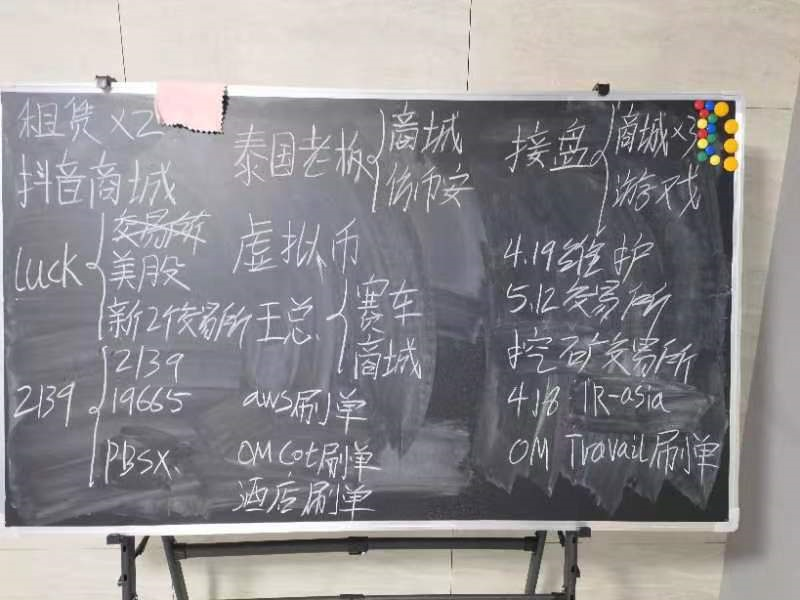 租赁×2
抖音商城
luck
交易所
美股
新2个交易所
2139
2139
19665
PBSX.
泰国老板
商城
仿币安
虚拟币
王总.
赛车
商城
aws刷单
OMCot刷单
酒店刷单
接盘
商城×3
游戏
4.19维护
5.12交易所
挖矿交易所
4.18 IR-asia
OM Travail刷单